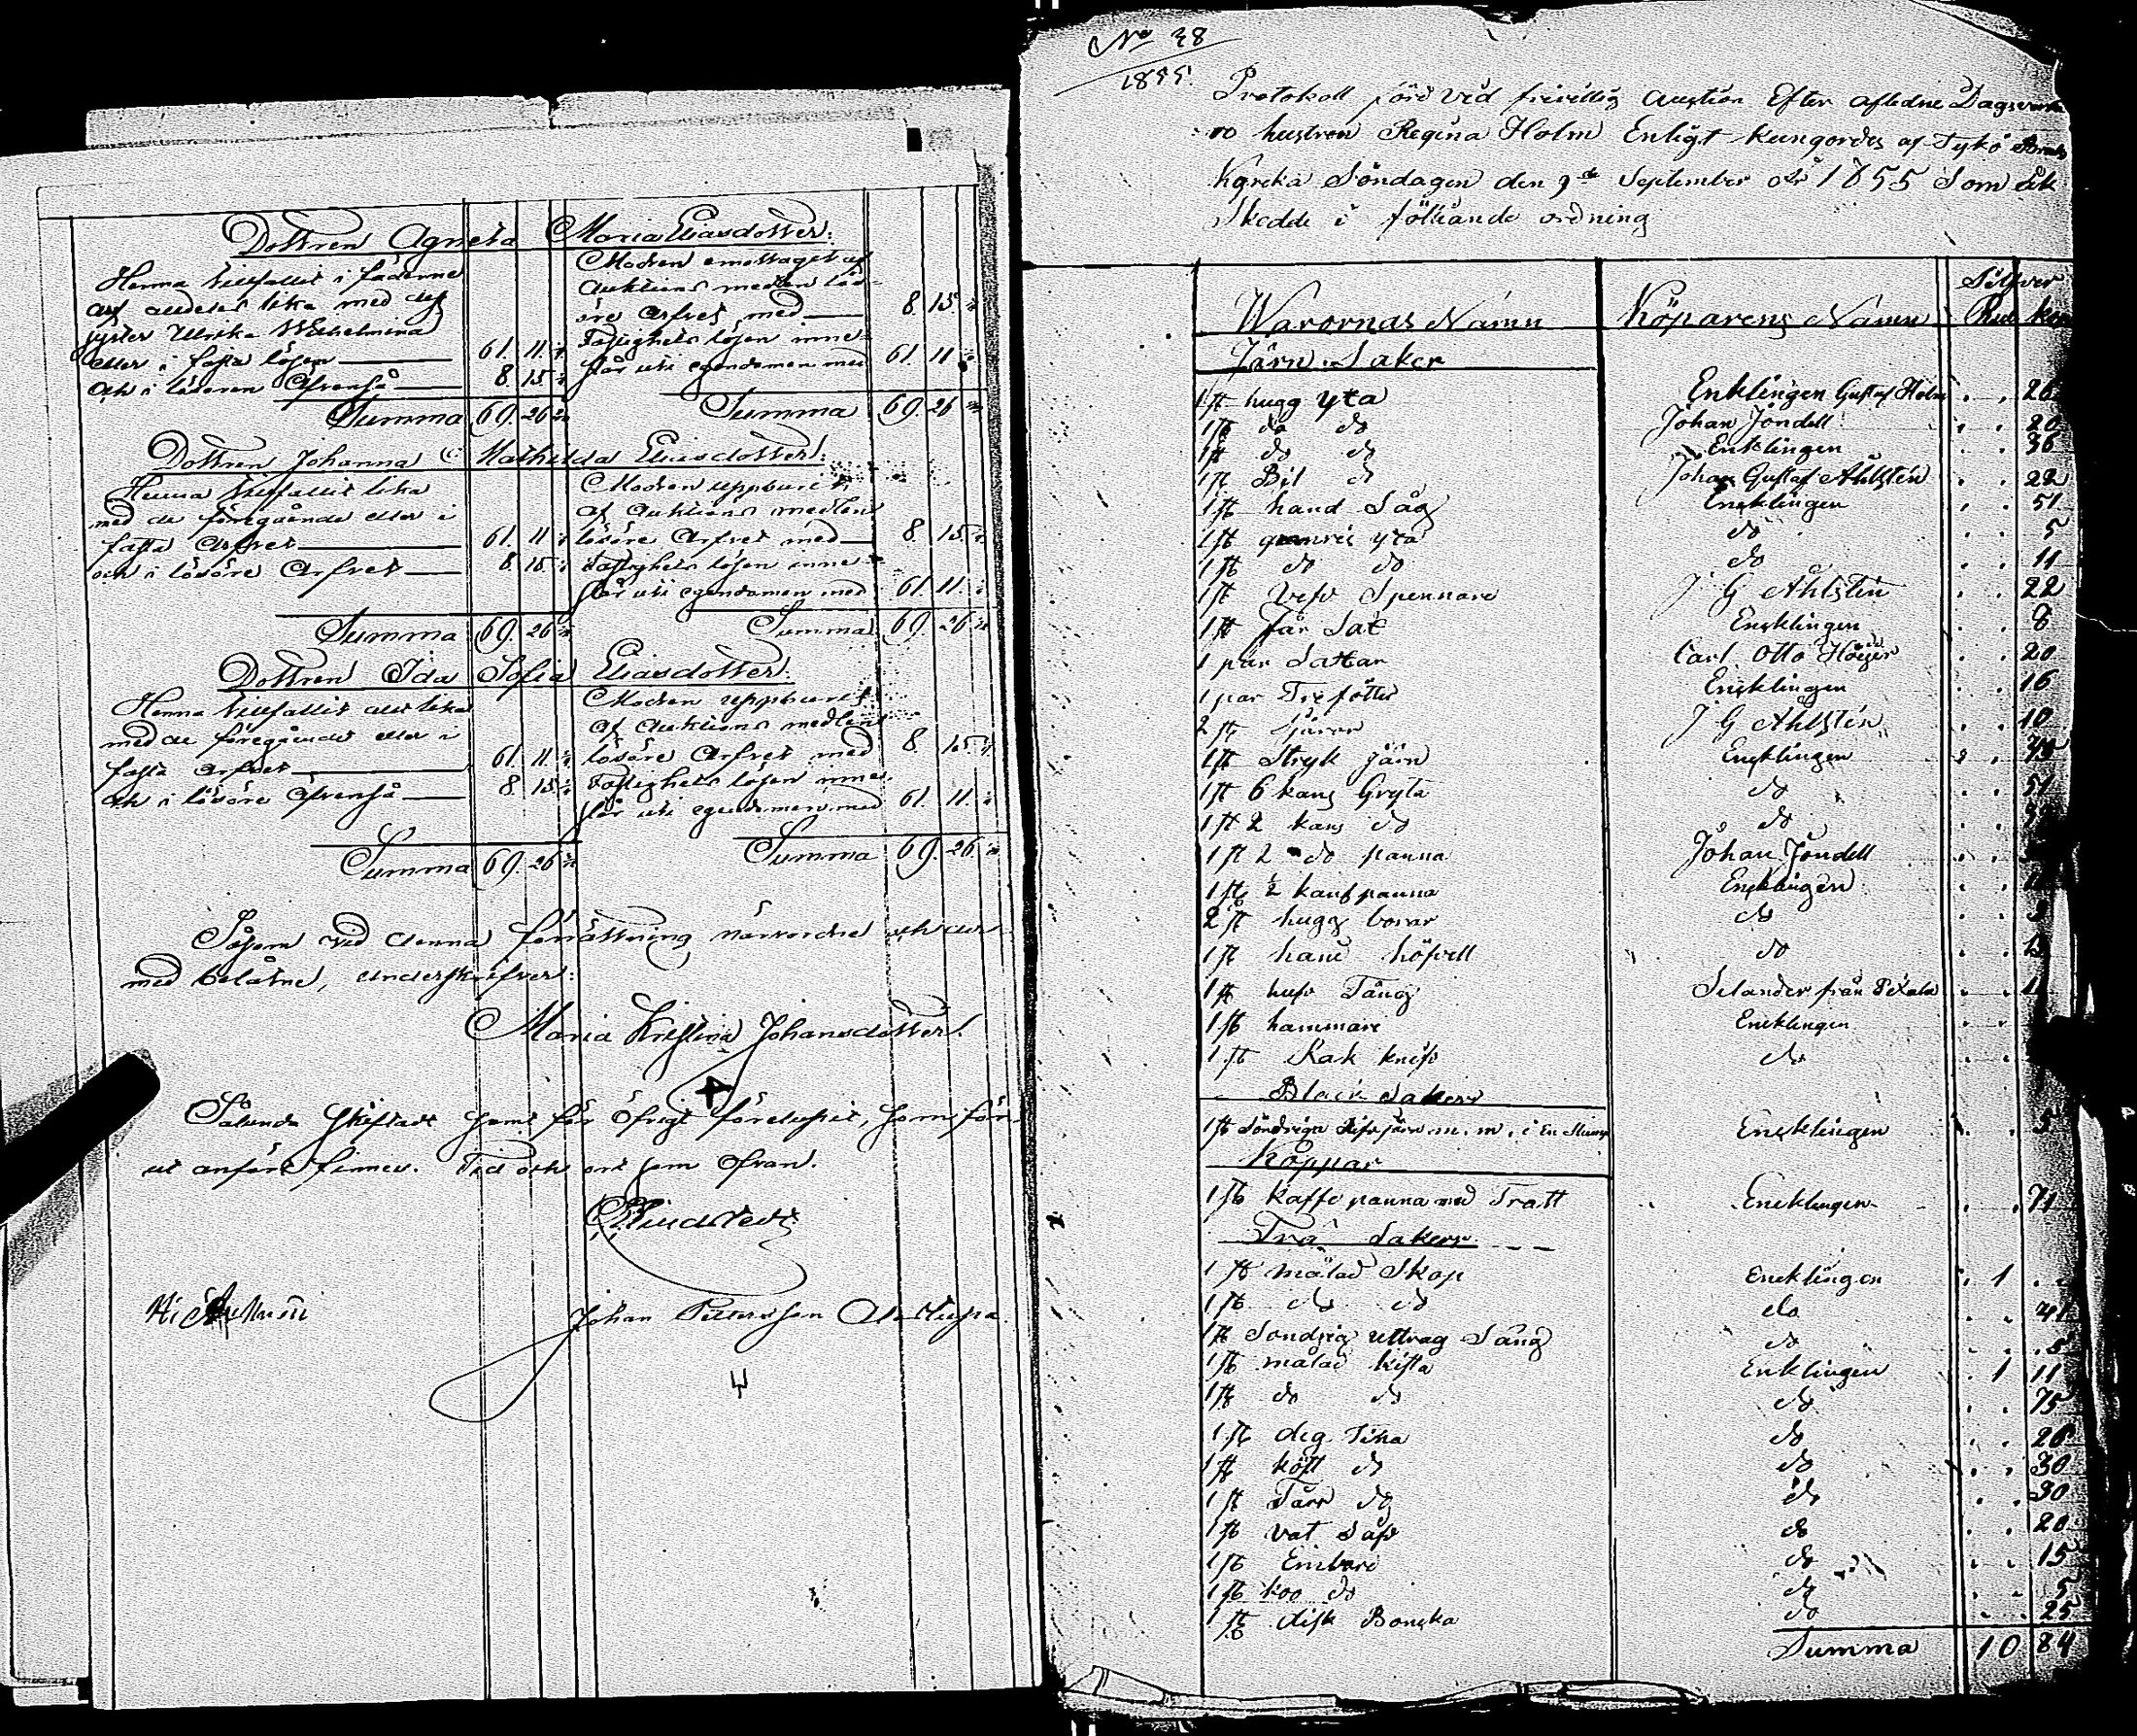 Dottren Agneta Maria Eliasdotter:
Henna tillfallit i fäderne
arf aldeles lika med dess
syster Ulrika Wilhelmina
eller i fasta lösen 61. 11.
och i lösören äfvenså 8. 15.
Summa 69. 26
Modren emottagit af
auktions medlen lös-
öre arfvet med 8. 15.
Fastighets lösen inne-
står uti egendomen med 61. 11.
Summa 69. 26
Dottren Johanna Mathilda Eliasdotter:
Henna tillfallit lika
med de föregående eller i
fasta arfvet 61. 11
och i lösöre arfvet 8. 15.
Summa 69. 26
Modren uppburit
af auktions medlen
lösöre arfvet med 8. 15.
Fastighets lösen inne-
står uti egendomen med 61. 11.
Summa 69. 26
Dottren Ida Sofia Eliasdotter:
Henna tillfallit lika
med de föregående eller i
fasta arfvet 61. 11.
och i lösöre äfvenså 8. 15.
Summa 69. 26
Modren uppburit
af auktions medlen
lösöre arfvet med 8. 15.
Fastighets lösen inne-
står uti egendomen med 61. 11.
Summa 69. 26
Såsom vid denna förättning närvarande och der
med belåtne, underskrifver:
Maria Kristina Johansdotter.
Sålunda skiftadt samt för öfrigt föreluppit, som för
ut anfört finnes. Tid och ort som ofvan.
Johan Petersson
No 38
1855
Protokoll förd vid frivillig auction Efter afledne Dagsverka
ro hustrun Regina Holm Enligt kungordes af Tykö Bruks
Kyrcka Söndagen den 9de September år 1855 Som åk
Skedde i följande ordning
Warornas Namn Köparens Namn Silfver Rub kop
Järn Saker
1 st hugg yxa Enklingen Gustaf Holm . . 26
1 st do do Johan Jöndell . . 20
1 st do do Enklingen . . 36
1 st Bil d Johan Gustaf Ahlstén . . 22
1 st hand Såg Encklingen . . 51
1 st granris yxa do . . 5
1 st do do do . . 11
1 st Vefv Spennare J G Ahlstén . . 22
1 st får Sax Encklingen . . 8
1 par Saxar Carl Otto Höijer . . 20
1 par Trefötter Encklingen . . 16
2 st J G Ahlstén . . 10
1 st Stryk järn Encklingen . . 45
1 st 6 kans Gryta do . . 51
1 st 2 kans do do
1 st 2 do panna Johan Jöndell
1 st ½ kans panna Encklingen
2 st hugg borar do
1 st hand höfvell do
1 st hofv Tång Selander från
1 st hammare Encklingen
1 st Rak knifv do
Bläck Saker
1 st Söndriga m. m. i En Encklingen . . 5
Koppar
1 st kaffe panna med Tratt Encklingen . . 71
Trä Saker
1 st målad Skop Encklingen . 1 . .
1 st do do do . . 41
1 st Söndrig uttrag Säng do . . 5
1 st målad kista Encklingen . 1 11
1 st do do do . . 75
1 st deg Tina do . . 26
1 st kött do do . . 30
1 st do do . . 30
1 st vat Så do . . 20
1 st Embare do . . 15
1 st koo do do . . 5
1 st disk Boncka do . . 25
Summa 10 84